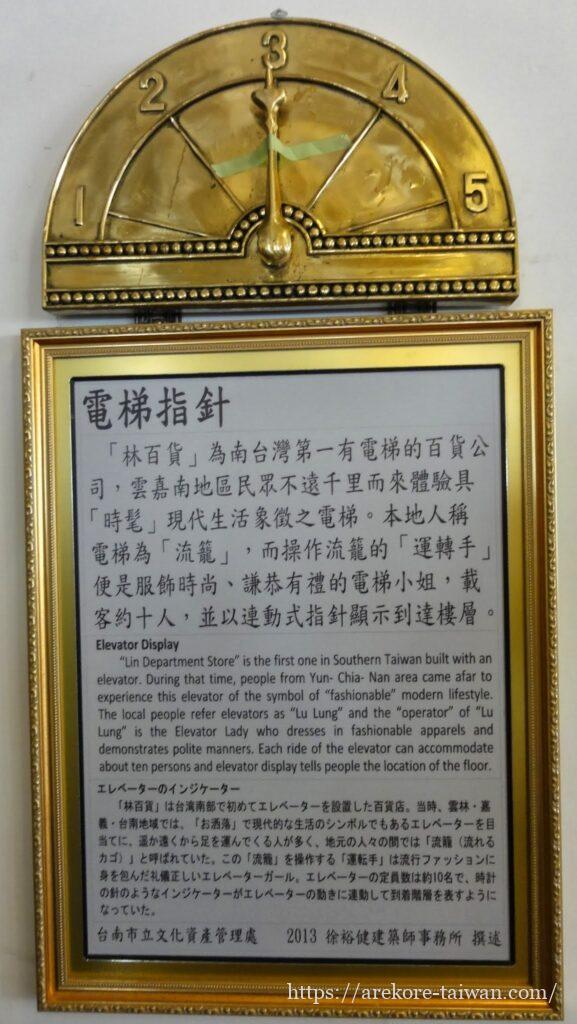 1 2 3 4 5
電梯指針
「林百貨」為南台灣第一有電梯的百貨公
司，雲嘉南地區民眾不遠千里而來體驗具
「時髦」現代生活象徵之電梯。本地人稱
電梯為「流籠」，而操作流籠的「運轉手」
便是服飾時尚、謙恭有禮的電梯小姐，載
客約十人，並以連動式指針顯示到達樓層。
Elevator Display
"Lin Department Store" is the first one in Southern Taiwan built with an
elevator. During that time, people from Yun- Chia- Nan area came afar to
experience this elevator of the symbol of "fashionable" modern lifestyle.
The local people refer elevators as "Lu Lung" and the "operator" of "Lu
Lung" is the Elevator Lady who dresses in fashionable apparels and
demonstrates polite manners. Each ride of the elevator can accommodate
about ten persons and elevator display tells people the location of the floor.
エレベーターのインジケーター
「林百貨」は台湾南部で初めてエレベーターを設置した百貨店。当時、雲林・嘉
義・台南地域では、「お洒落」で現代的な生活のシンボルでもあるエレベーターを目
当てに、遥か遠くから足を運んでくる人が多く、地元の人々の間では「流籠（流れる
カゴ）」と呼ばれていた。この「流籠」を操作する「運転手」は流行ファッションに
身を包んだ礼儀正しいエレベーターガール。エレベーターの定員数は約10名で、時計
の針のようなインジケーターがエレベーターの動きに連動して到着階層を表すように
なっていた。
台南市立文化資產管理處 2013 徐裕健建築師事務所 撰述
https://arekore-taiwan.com/